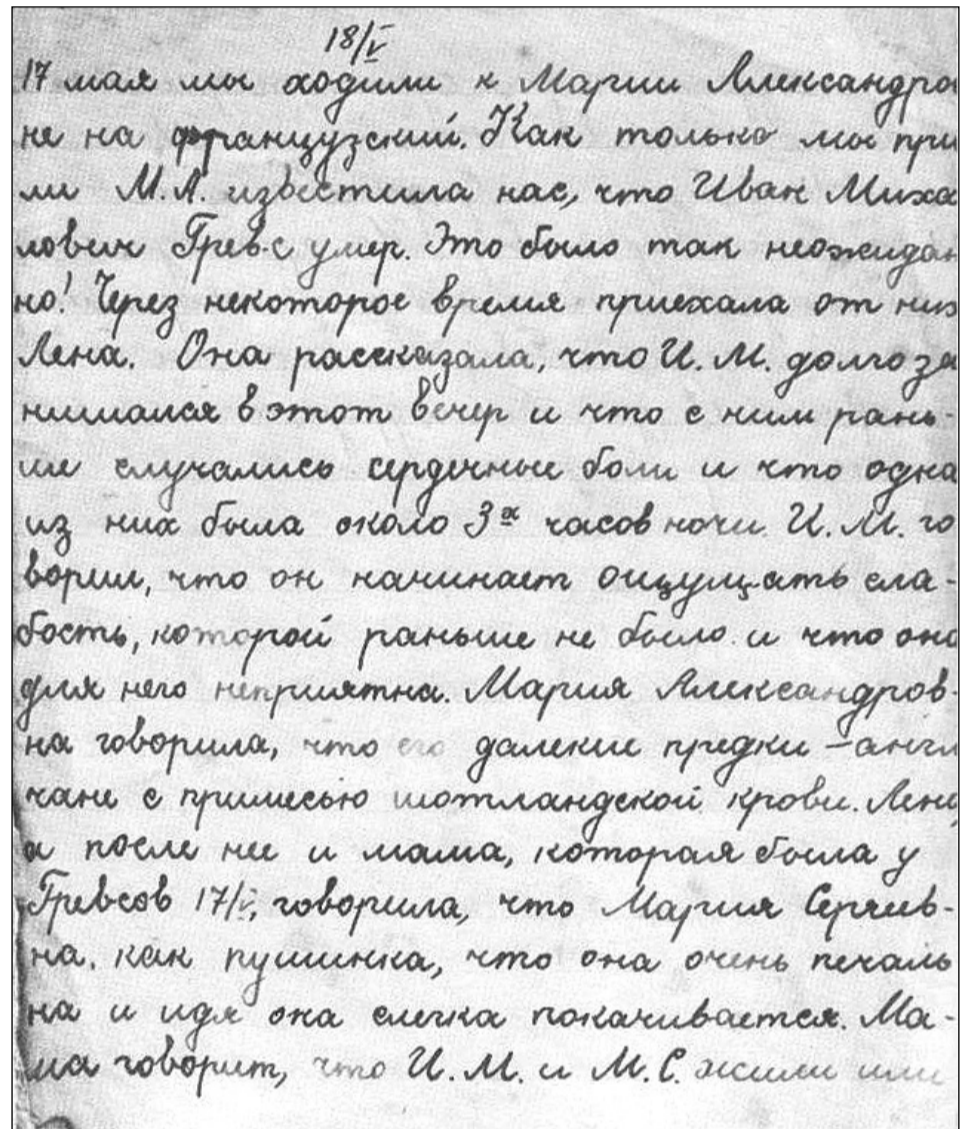 18/V
17 мая мы ходили к Марии Александров
не на французский. Как только мы при
ли М.А. известила нас, что Иван Миха
лович Гревс умер. Это было так неожидан
но! Через некоторое время приехала от них
Лена. Она рассказала, что И. М. долго за
нимался в этот вечер и что с ним рань-
ше случались сердечные боли и что одна
из них была около 3х часов ночи. И. М. го
ворил, что он начинает ощущать сла-
бость, которой раньше не было и что она
для него неприятна. Мария Александров-
на говорила, что его далекие предки – англ
чане с примесью шотландской крови. Лена,
а после нее и мама, которая была у
Гревсов 17/V, говорила, что Мария Сергеев-
на, как пушинка, что она очень печаль
на и идя она слегка покачивается. Ма-
ма говорит, что И. М. и М. С. жили или